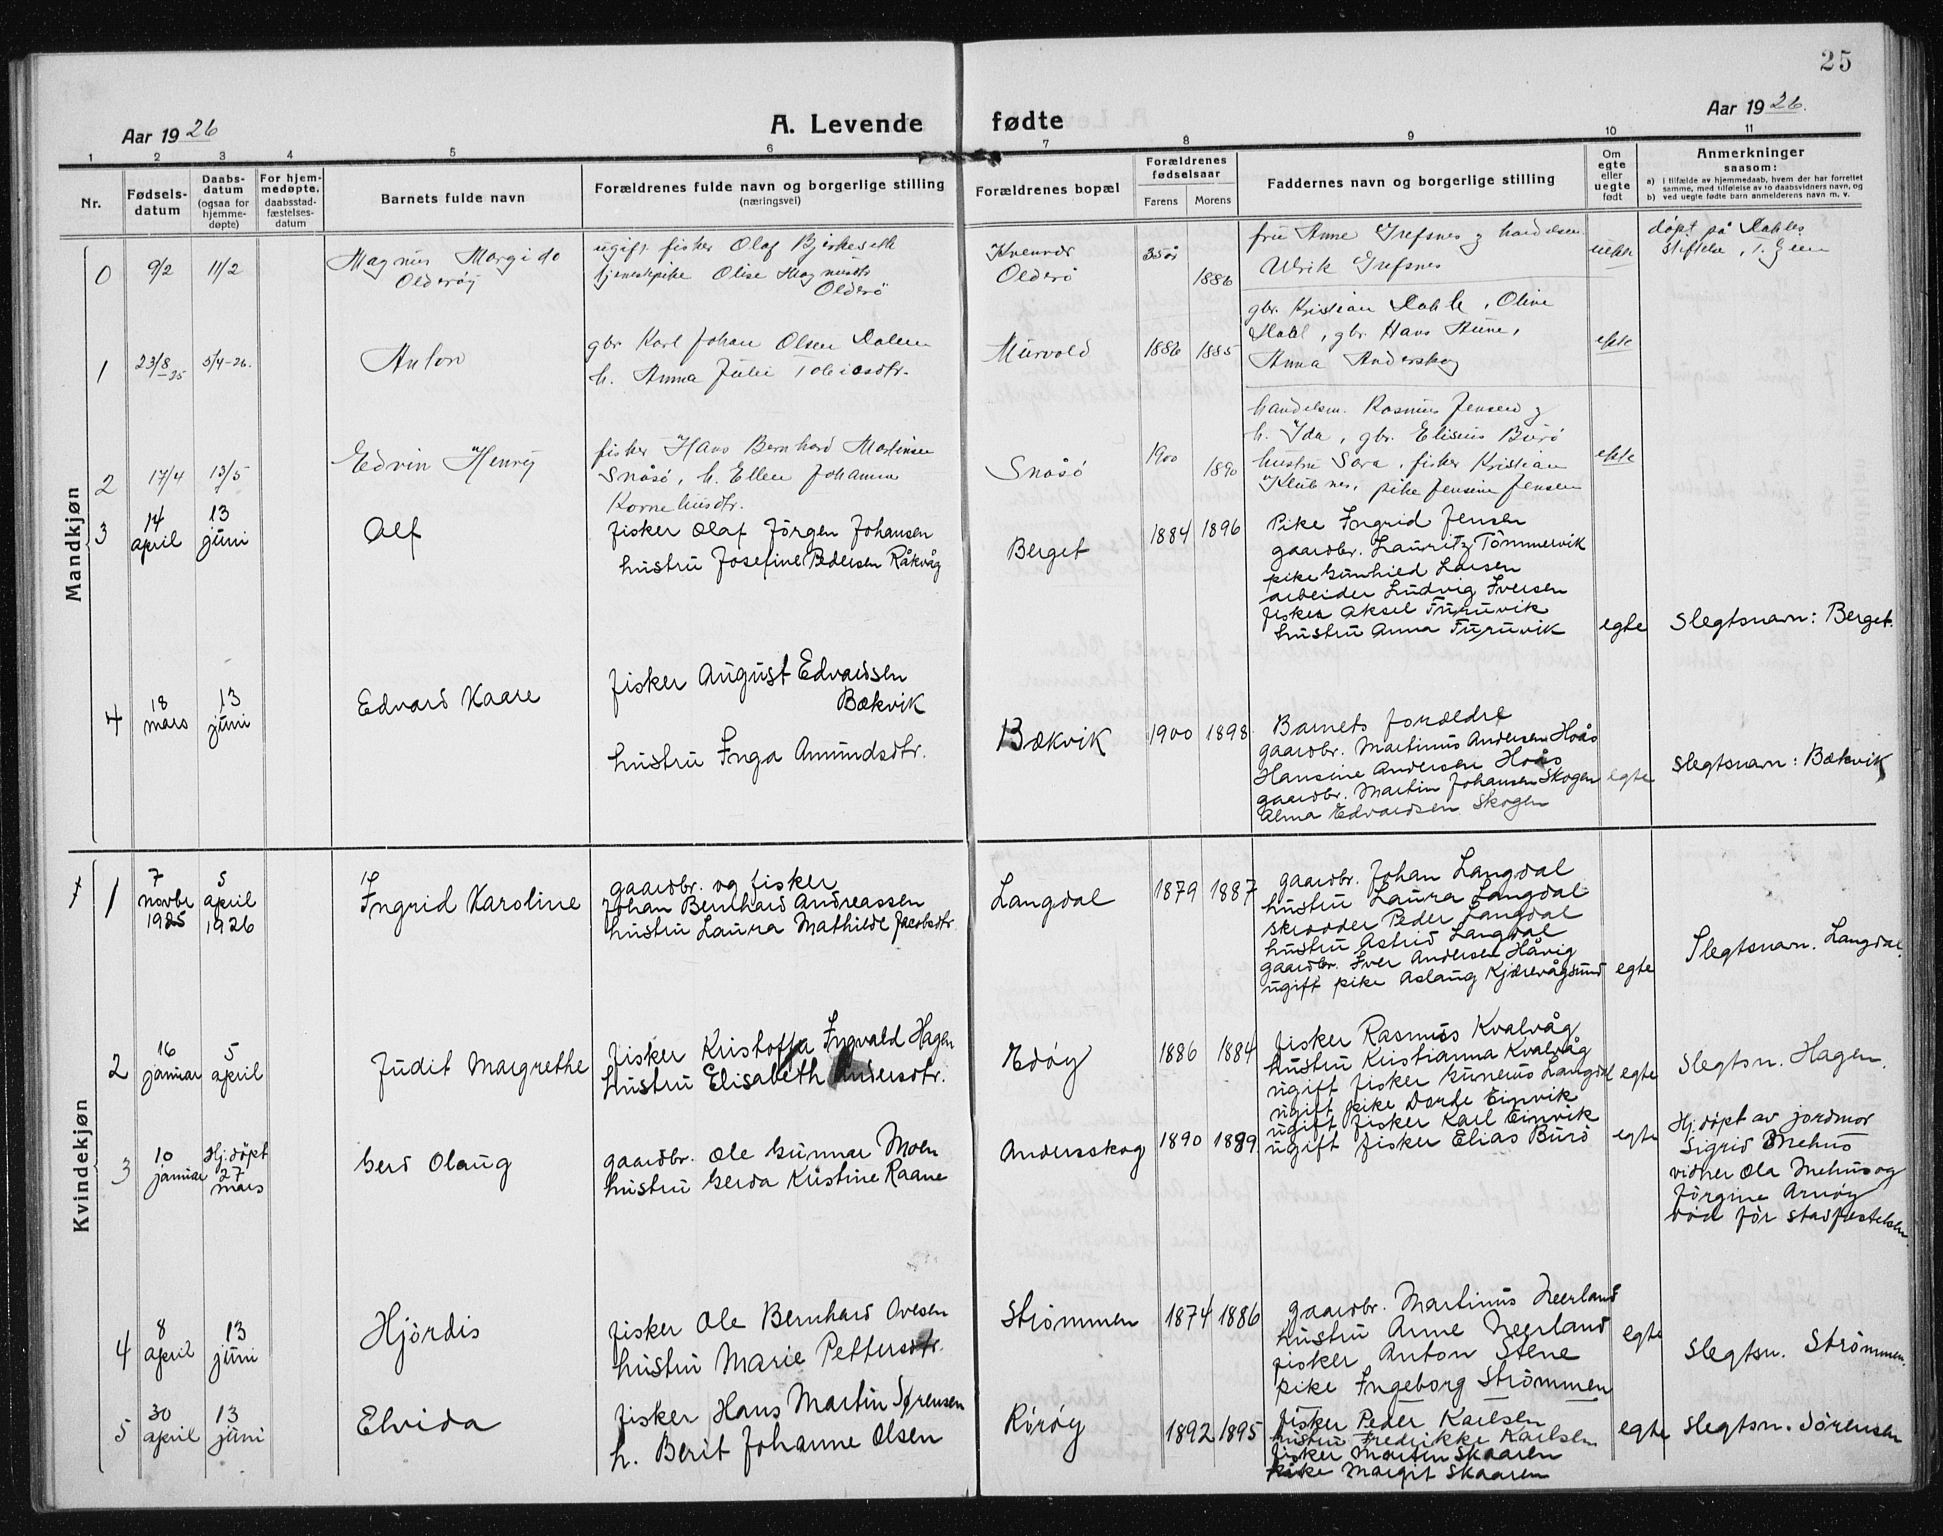 25
Aar 1926
A. Levende fødte
Aar 1926.
1 2 3 4 5 6 7 8 9 10 11
Nr.
Fødsels-
datum
Daabs-
datum
(ogsaa for
hjemme-
døpte)
For hjem-
medøpte,
daabsstad-
fæstelses-
datum
Barnets fulde navn
Forældrenes fulde navn og borgerlige stilling
(næringsvei)
Forældrenes bopæl
Forældrenes
fødselsaar
Farens Morens
Faddernes navn og borgerlige stilling
Om
egte
eller
uegte
født
Anmerkninger
saasom:
a) i tilfælde av hjemmedaab, hvem der har forrettet
samme, med tilføielse av to daabsvidners navn, og
b) ved uegte fødte barn anmelderens navn m. v.
Mandkjøn
0 9/2 11/2
Magnus Margido
Olderøy
ugift fisker Olaf Birkeseth
tjenestepike Olise Magnusdtr
Olderö
Olderö
35 år
1886
fru Anne Grefsnes
Ulrik Grefsnes
uekte
døpt på Dahles
Stiftelse
1 23/8 25 5/4-26.
Anton
gbr Karl Johan Olsen Dalen
h. Anna Julie Tobiasdtr.
Murvold
1886 1885
gbr. Kristian Dahle, Oline
Dahl, gbr. Hans Aune,
Anna Anderskog
ekte
2 17/4 13/5
Edvin Henry
fisker Hans Bernhard Martinsen
Snåsö, h. Ellen Johanna
Kornelius dtr.
Snåsö
1900 1890
handelsm. Rasmus Jensen og
h. Ida, gbr. Eliseus Burö
hustru Sara, fisker Kristian
Klubnes, pike Jensine Jensen
ekte
3 14 april 13 juni
Alf
fisker Olaf Jörgen Johansen
hustru Josefine Pedersen Råkvåg
Berget
1884 1896
Pike Ingrid Jensen
gaardbr. Lauritz Tömmervik
pike Gunhild Larsen
arbeider Ludvig Iversen
fisker Aksel Furuvik
hustru Anna Furuvik
egte
Slegtsnavn: Berget.
4 18 mars 13 juni
Edvard Kaare
fisker August Edvardsen
Bækvik
hustru Inga Amundsdtr.
Bækvik
1900 1898
Barnets forældre
gaardbr. Martinus Andersen Hoås
Hansine Andersen Hoås
gaardbr. Martin Johansen Skogen
Alma Edvardsen Skogen
egte
slegtsnavn: Bækvik
Kvindekjøn
1 7 novbr 1925 5 april 1926
Ingrid Karoline
gaardbr. og fisker
Johan Bernhard Andreassen
hustru Laura Mathilde Jacobsdtr.
Langdal
1879 1887
gaardbr. Johan Langdal
hustru Laura Langdal
skrædder Peder Langdal
hustru Astrid Langdal
gaardbr. Iver Andersen Håvig
ugift pike Aslaug Kjærevågsund
egte
Slegtsnavn. Langdal.
2 16 januar 5 april
Judit Margrethe
fisker Kristoffa Ingvald Hagen
hustru Elisabeth Andersdtr.
Edöy
1886 1884
fisker Rasmus Kvalvåg
hustru Kristianna Kvalvåg
ugift fisker Gunerius Langdal
ugift pike Dorde Einvik
ugift fisker Karl Einvik
ugift fisker Elias Burö
egte
Slegtsn. Hagen.
3 10 januar Hj. döpt 27 mars
Gerd Olaug
gaardbr. Ole Gunnar Moen
hustru Gerda Kristine Raane
Andersskog
1890 1899
egte
Hj. döpt av jordmor
Sigrid Mehus
vidner Ola Mehus og
Jörgine Arnöy
död för stadfæstelsen.
4 8 april 13 juni
Hjördis
fisker Ole Bernhard Ovesen
hustru Marie Pettersdtr.
Strömmen
1874 1886
gaardbr. Martinus Neerland
hustru Anne Neerland
fisker Anton Stene
pike Ingeborg Strömmen
egte
Slegtsn. Strömmen.
5 30 april 13 juni
Elvida
fisker Hans Martin Sørensen
h. Berit Johanne Olsen
Röröy
1892 1895
fisker Peder Karlsen
hustru Fredrikke Karlsen
fisker Martin Skaaren
pike Margit Skaaren
egte
slegtsn. Sörensen